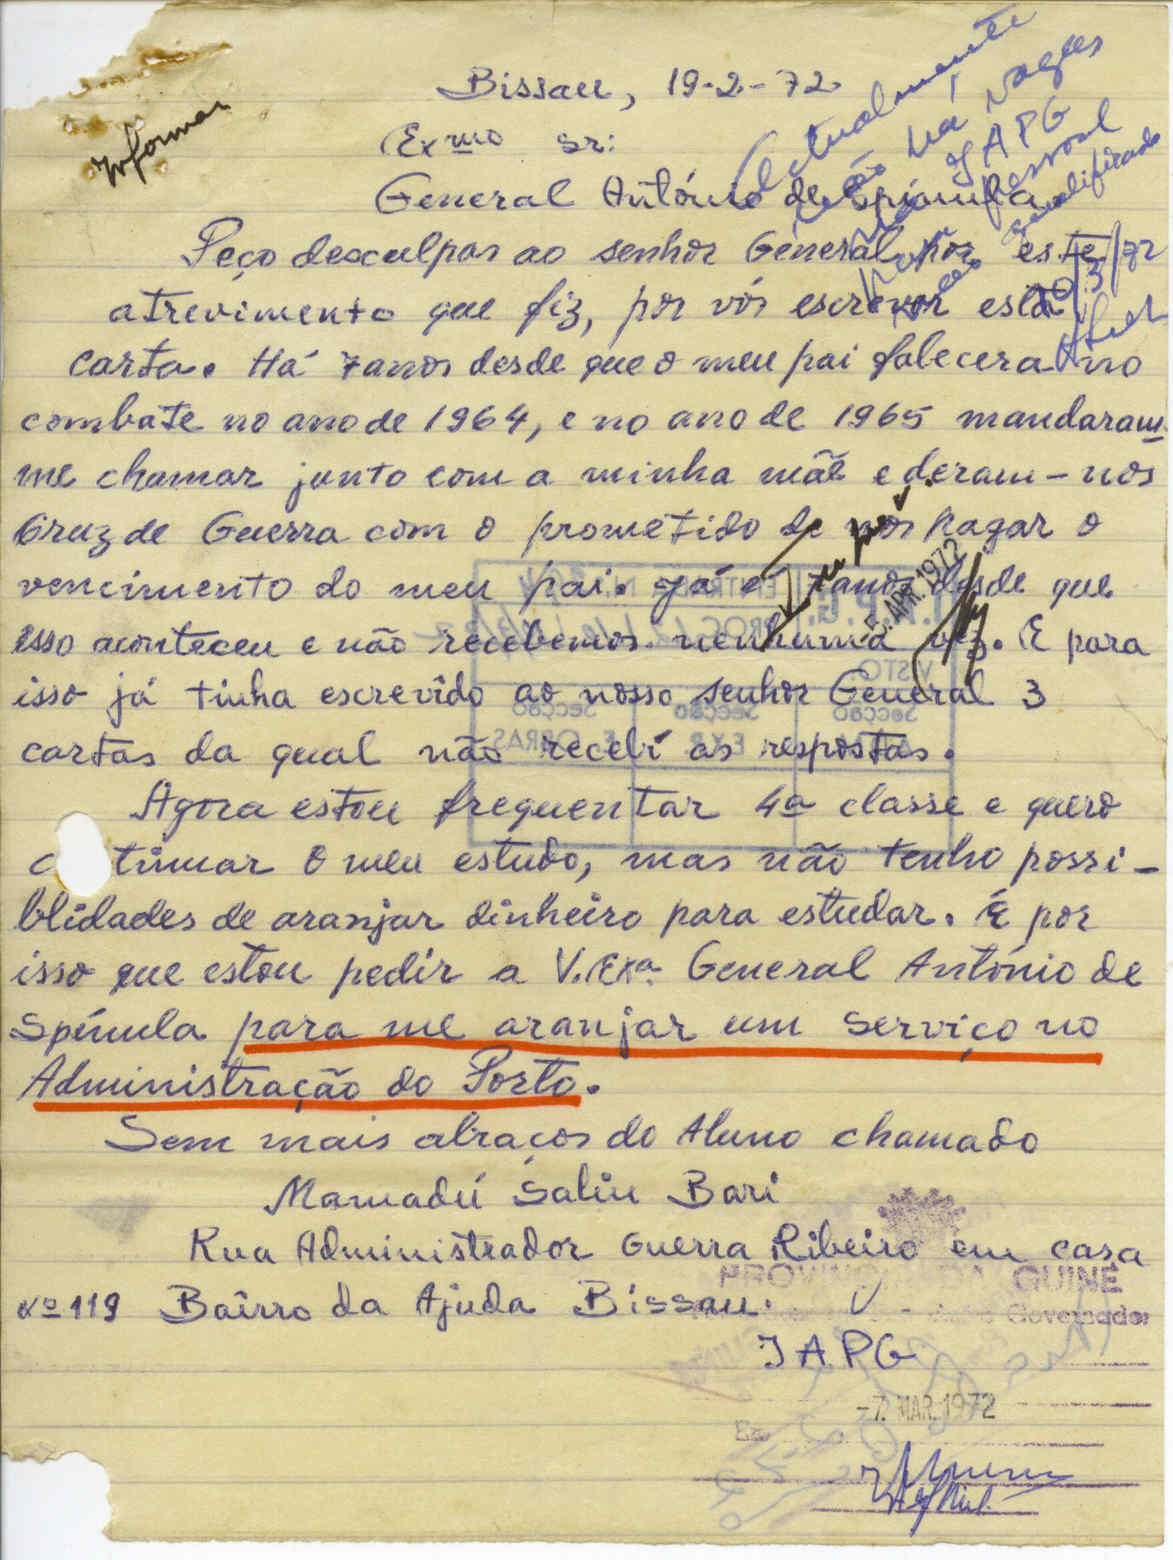 Informar
Bissau, 19-2-72
Exmo Sr:
General António de Spínula
Actualmente
não há vagas
JAPG
pessoal
qualificado
/3/72
Peço desculpas ao senhor General por este
atrevimento que fiz, por vós escrever esta
carta. Há 7 anos desde que o meu pai falecera no
combate no ano de 1964, e no ano de 1965 mandaram-
me chamar junto com a minha mãe e deram-nos
Cruz de Guerra com o prometido de nos pagar o
vencimento do meu pai. Já e 7 anos desde que
isso aconteceu e não recebemos nenhuma vez. E para
isso já tinha escrevido ao nosso senhor General 3
cartas da qual não recebí as respostas.
Agora estou frequentar 4a classe e quero
c tinuar o meu estudo, mas não tenho possi-
blidades de aranjar dinheiro para estudar. É por
isso que estou pedir a V. Exa. General António de
Spínula para me aranjar um serviço no
Administração do Porto.
Sem mais abraços do Aluno chamado
Mamadú Saliu Bari
Rua Administrador Guerra Ribeiro em casa
nº 119 Bairro da Ajuda Bissau.
PROVINCIA DA GUINÉ
Governador
JAPG
-7. MAR. 1972
APR. 1972
ENTRADA
VISTO
Secção Secção Secção
OBRAS